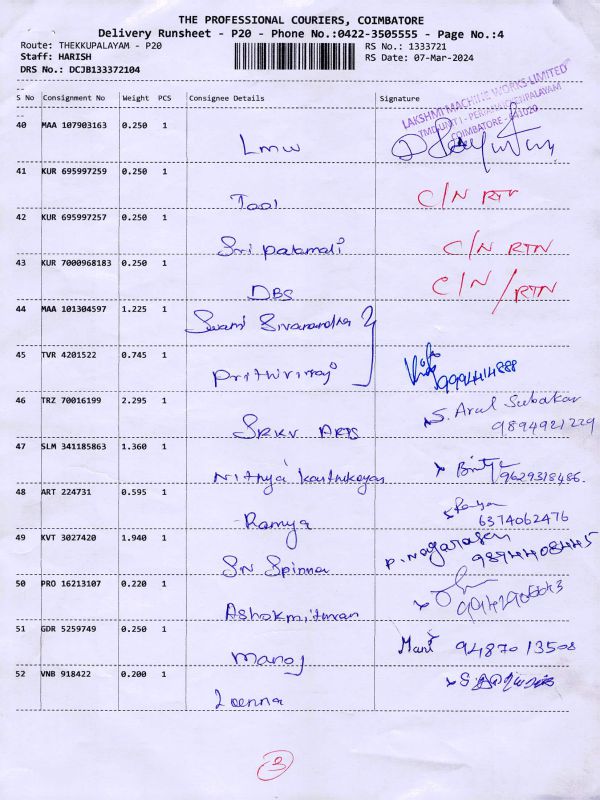 THE PROFESSIONAL COURIERS, COIMBATORE
Delivery Runsheet - P20 - Phone No.:0422-3505555 - Page No.:4
Route: THEKKUPALAYAM - P20 RS No.: 1333721
Staff: HARISH RS Date: 07-Mar-2024
DRS No.: DCJB133372104
S No Consignment No Weight PCS Consignee Details Signature
LAKSHMI MACHINE WORKS LIMITED
COIMBATORE - 641020
40 MAA 107903163 0.250 1
Lmw
41 KUR 695997259 0.250 1 C/N RTN
Tool
42 KUR 695997257 0.250 1
Sri Patamali C/N RTN
43 KUR 7000968183 0.250 1 C/N / RTN
DBS
44 MAA 101304597 1.225 1
Swami Sivanandha
45 TVR 4201522 0.745 1
Prithiviraj 9994414888
46 TRZ 70016199 2.295 1 S. Arul Subakar
SRKV ARTS 9894921229
47 SLM 341185863 1.360 1
Nithya Karthikeyan 9629318486.
48 ART 224731 0.595 1
Ramya 6374062476
49 KVT 3027420 1.940 1 P. Nagarasan
SN Spinna 9894408445
50 PRO 16213107 0.220 1
Ashokmithran
51 GDR 5259749 0.250 1 Mani 9487013508
Manoj
52 VNB 918422 0.200 1
Leenna
3